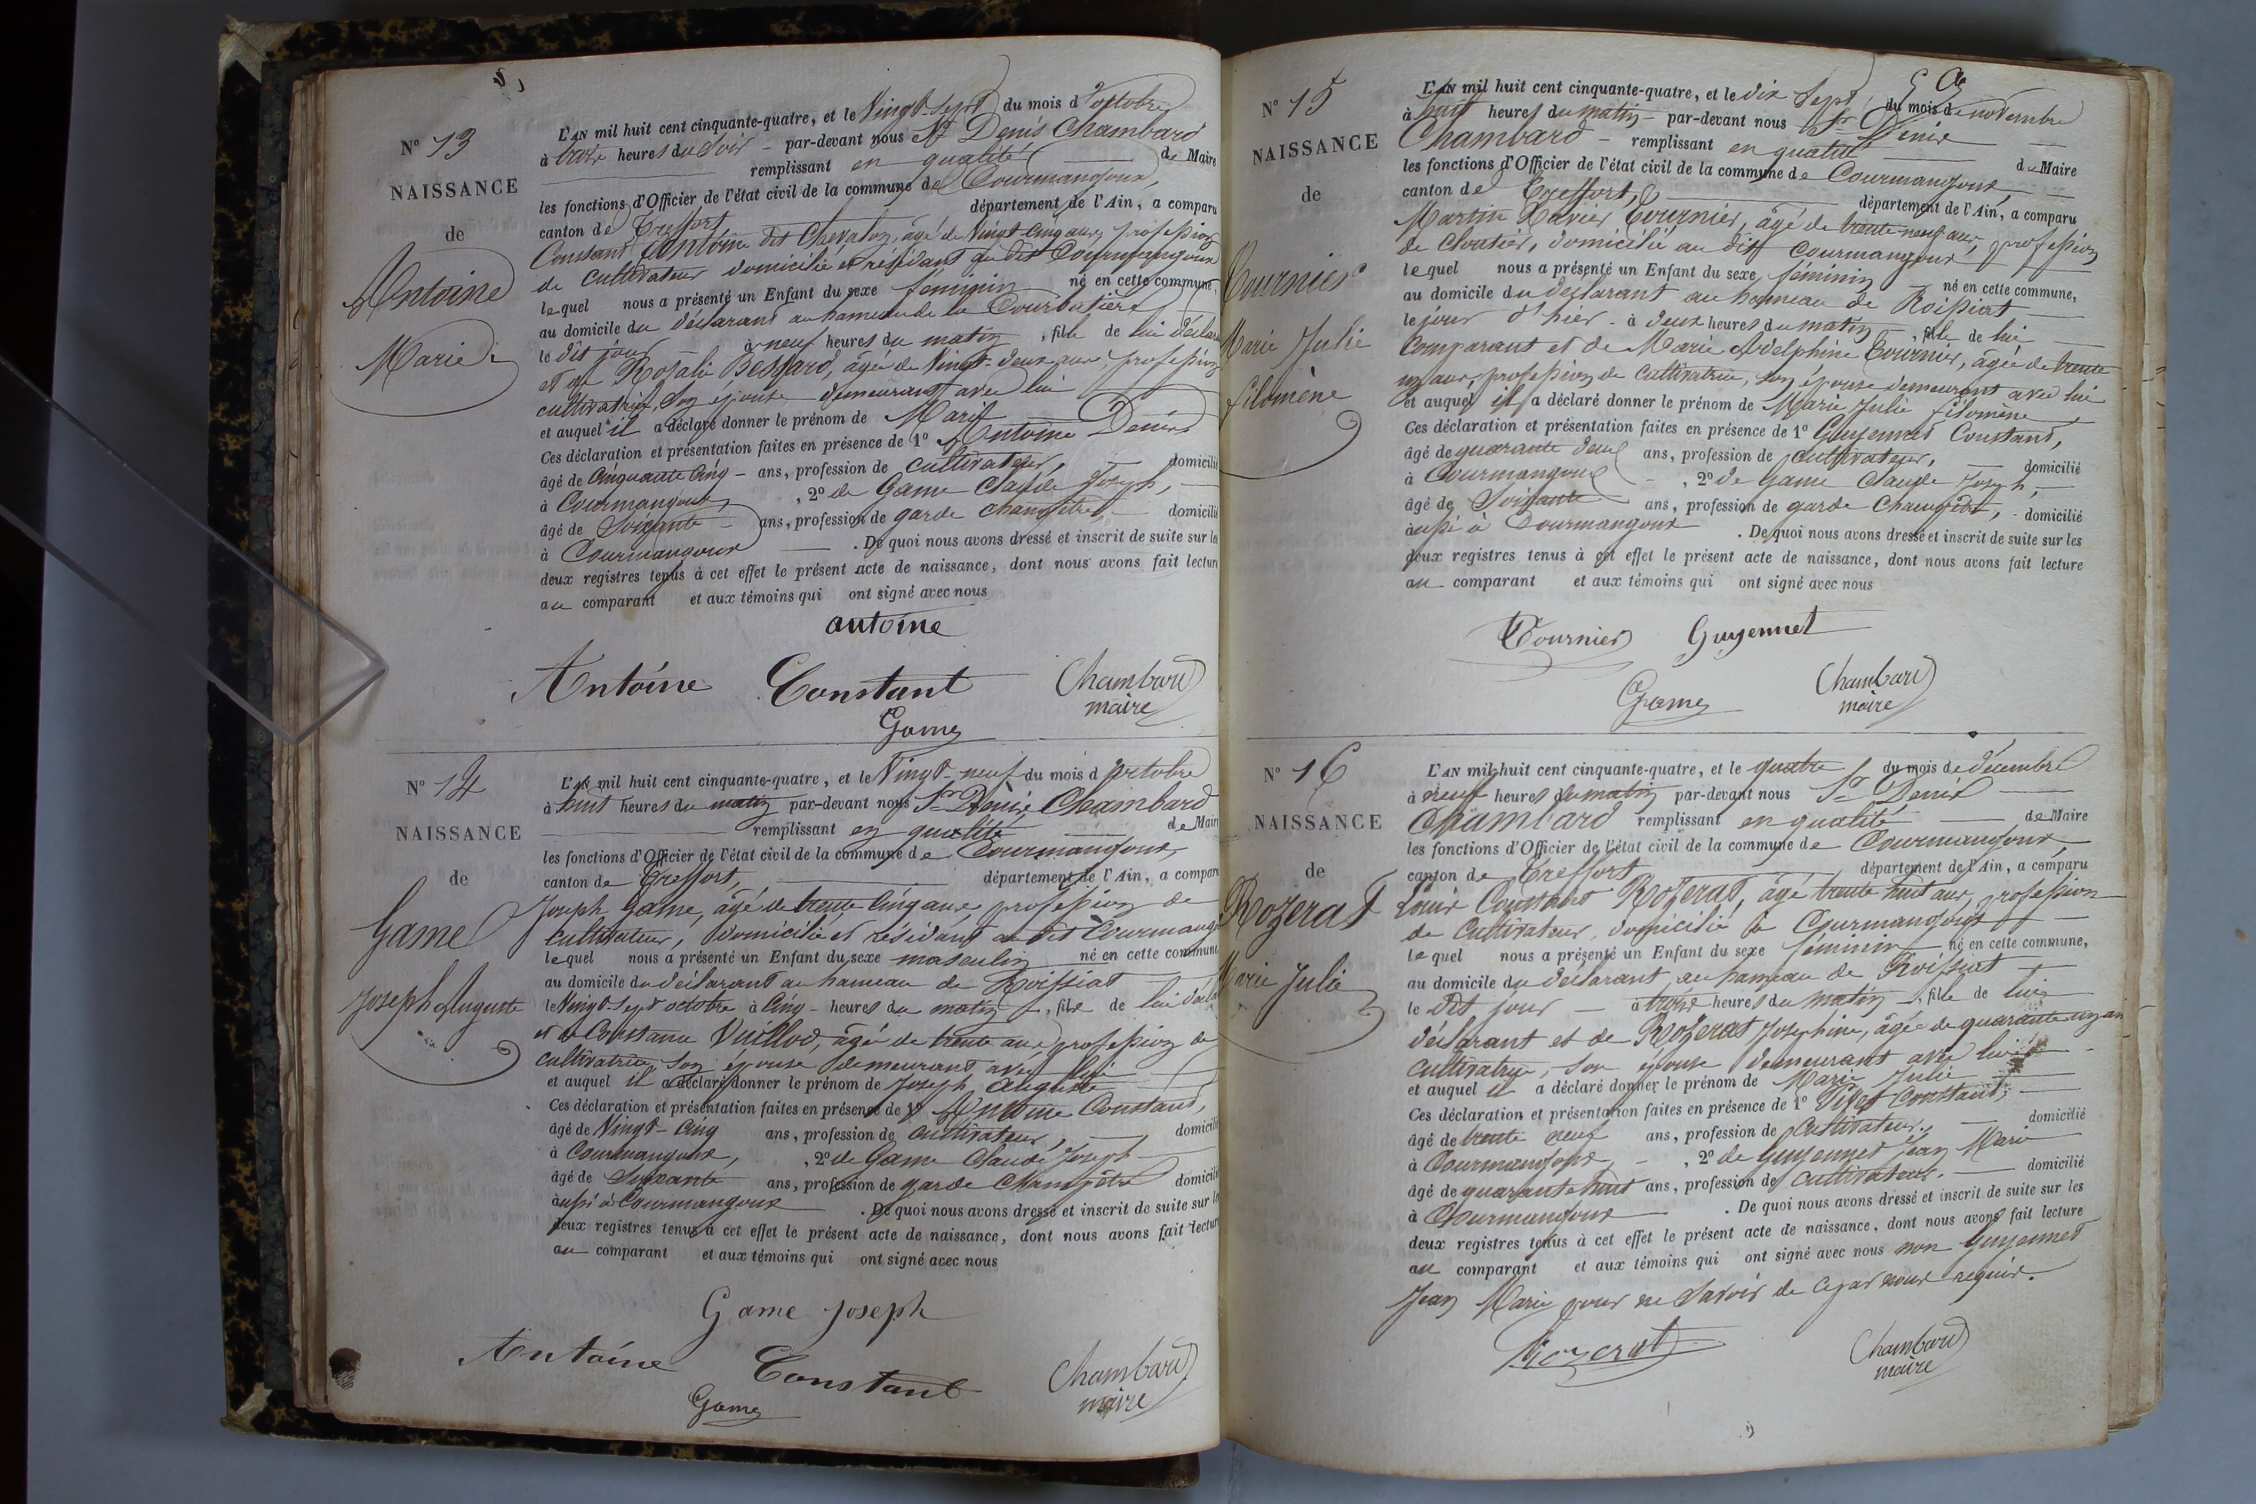 N° 13
NAISSANCE
de
Antoine
Marie
L'AN mil huit cent cinquante-quatre, et le Vingt-sept du mois d'octobre
à trois heures du soir - par-devant nous Sr Denis Chambard
remplissant en qualité de Maire
les fonctions d'Officier de l'état civil de la commune de Courmangoux,
canton de Treffort département de l'Ain, a comparu
Constant Antoine dit Chevalon, âgé de Vingt-cinq ans, profession
de cultivateur domicilié et résidant au dit Courmangoux
lequel nous a présenté un Enfant du sexe féminin né en cette commune,
au domicile du déclarant au hameau de la Courbatière
le dit jour à neuf heures du matin, fille de lui déclar
et de Rosalie Bessard, âgée de Vingt-deux ans, profession
cultivatrice, son épouse demeurant avec lui
et auquel il a déclaré donner le prénom de Marie
Ces déclaration et présentation faites en présence de 1° Antoine Denis
âgé de Cinquante cinq - ans, profession de cultivateur, domicilié
à Courmangoux, , 2° de Game Claude Joseph,
âgé de Soixante ans, profession de garde champêtre, domicilié
à Courmangoux . De quoi nous avons dressé et inscrit de suite sur les
deux registres tenus à cet effet le présent acte de naissance, dont nous avons fait lecture
au comparant et aux témoins qui ont signé avec nous
antoine
Antoine Constant Chambard
maire
Game
N° 14
NAISSANCE
de
Game
Joseph Auguste
L'AN mil huit cent cinquante-quatre, et le Vingt-neuf du mois d'octobre
à huit heures du matin par-devant nous Sr Denis Chambard
remplissant en qualité de Maire
les fonctions d'Officier de l'état civil de la commune de Courmangoux,
canton de Treffort, département de l'Ain, a comparu
Joseph Game, âgé de trente cinq ans profession de
cultivateur, domicilié et résidant au dit Courmangoux
lequel nous a présenté un Enfant du sexe masculin né en cette commune
au domicile du déclarant au hameau de Roissiat
le Vingt-sept octobre à Cinq - heures du matin, fils de lui décla
et de Constance Vuillod, âgée de trente ans, profession de
cultivatrice, son épouse demeurant avec lui
et auquel il a déclaré donner le prénom de Joseph Auguste
Ces déclaration et présentation faites en présence de 1° Antoine Constant,
âgé de Vingt-cinq ans, profession de cultivateur, domicilié
à Courmangoux, , 2° de Game Claude Joseph
âgé de Soixante ans, profession de garde champêtre domicilié
aussi à Courmangoux . De quoi nous avons dressé et inscrit de suite sur les
deux registres tenus à cet effet le présent acte de naissance, dont nous avons fait lecture
au comparant et aux témoins qui ont signé avec nous
Game Joseph
Antoine Constant Chambard
maire
Game
N° 15
NAISSANCE
de
Tournier
Marie Julie
filomène
L'AN mil huit cent cinquante-quatre, et le dix sept du mois de novembre
à huit heures du matin - par-devant nous Sr Denis
Chambard - remplissant en qualité de Maire
les fonctions d'Officier de l'état civil de la commune de Courmangoux,
canton de Treffort, département de l'Ain, a comparu
Martin Xavier Tournier, âgé de trente neuf ans, profession
de cloutier, domicilié au dit Courmangoux
lequel nous a présenté un Enfant du sexe féminin né en cette commune,
au domicile du déclarant au hameau de Roissiat
le jour d'hier - à deux heures du matin, fille de lui
comparant et de Marie Adelphine Tournier, âgée de trente
un ans, profession de cultivatrice, son épouse demeurant avec lui
et auquel il a déclaré donner le prénom de Marie Julie filomène
Ces déclaration et présentation faites en présence de 1° Guyennet Constant,
âgé de quarante deux ans, profession de cultivateur, domicilié
à Courmangoux - , 2° de Game Claude Joseph,
âgé de Soixante ans, profession de garde champêtre, domicilié
aussi à Courmangoux . De quoi nous avons dressé et inscrit de suite sur les
deux registres tenus à cet effet le présent acte de naissance, dont nous avons fait lecture
au comparant et aux témoins qui ont signé avec nous
Tournier Guyennet
Game Chambard
maire
N° 16
NAISSANCE
de
Rozerat
Marie Julie
L'AN mil huit cent cinquante-quatre, et le quatre du mois de décembre
à neuf heures du matin par-devant nous Sr Denis
Chambard remplissant en qualité de Maire
les fonctions d'Officier de l'état civil de la commune de Courmangoux,
canton de Treffort département de l'Ain, a comparu
Louis Constant Rozerat, âgé trente huit ans, profession
de cultivateur, domicilié à Courmangoux
lequel nous a présenté un Enfant du sexe féminin né en cette commune,
au domicile du déclarant au hameau de Roissiat
le dit jour - à trois heures du matin, fille de lui
déclarant et de Rozerat Josephine, âgée de quarante un an
cultivatrice, son épouse demeurant avec lui
et auquel il a déclaré donner le prénom de Marie Julie
Ces déclaration et présentation faites en présence de 1° Pivet Constant,
âgé de trente neuf ans, profession de cultivateur, domicilié
à Courmangoux - , 2° de Guyennet Jean Marie
âgé de quarante huit ans, profession de cultivateur. domicilié
à Courmangoux . De quoi nous avons dressé et inscrit de suite sur les
deux registres tenus à cet effet le présent acte de naissance, dont nous avons fait lecture
au comparant et aux témoins qui ont signé avec nous non Guyennet
Jean Marie pour ne savoir de ce par nous requis.
Rozerat Chambard
maire